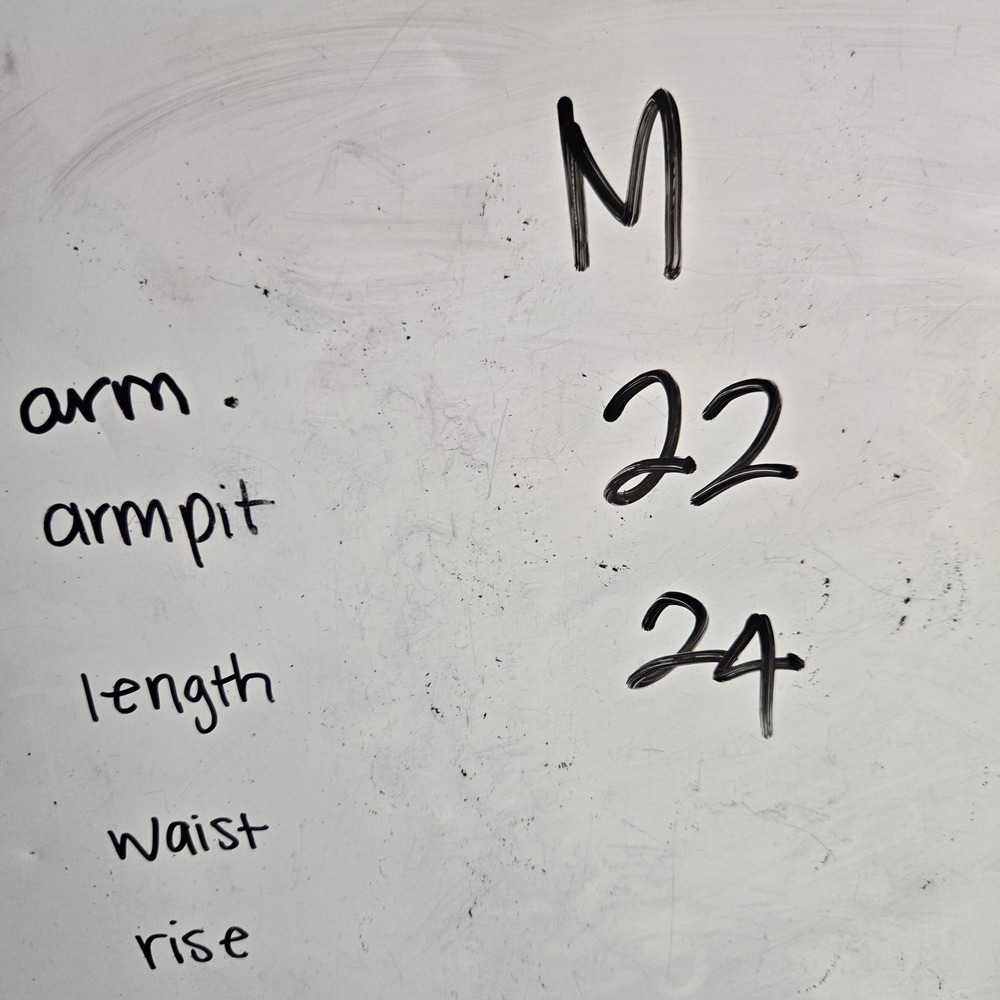 M
arm . 22
armpit
length 24
waist
rise